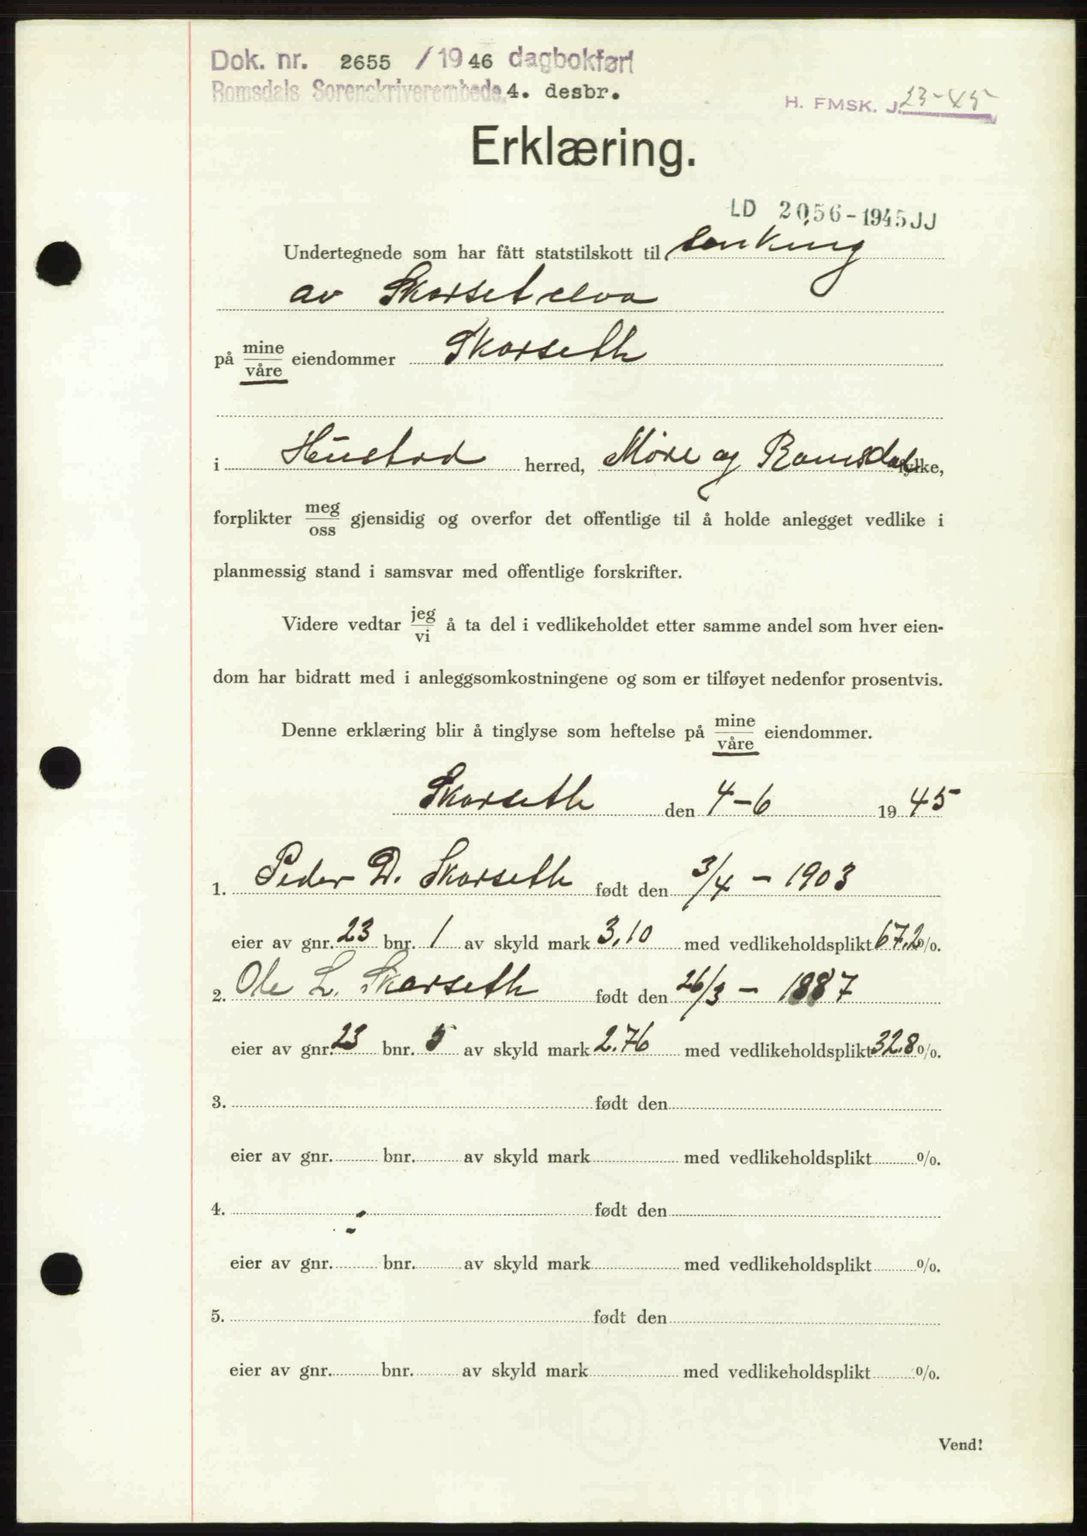 Dok. nr. 2655 /1946 dagbokført
Romsdals Sorenskriverembede, 4. desbr.
H. FMSK. J. 23-45
Erklæring.
LD 2056-1945 JJ
Undertegnede som har fått statstilskott til senking
av Skarsetelva
på mine/våre eiendommer Skarseth
i Hustad herred, Møre og Romsdal fylke,
forplikter meg/oss gjensidig og overfor det offentlige til å holde anlegget vedlike i
planmessig stand i samsvar med offentlige forskrifter.
Videre vedtar jeg/vi å ta del i vedlikeholdet etter samme andel som hver eien-
dom har bidratt med i anleggsomkostningene og som er tilføyet nedenfor prosentvis.
Denne erklæring blir å tinglyse som heftelse på mine/våre eiendommer.
Skarseth den 4-6 1945
1. Peder D. Skarseth født den 3/4 - 1903
eier av gnr. 23 bnr. 1 av skyld mark 3,10 med vedlikeholdsplikt 67,2 %.
2. Ole L. Skarseth født den 26/3 - 1887
eier av gnr. 23 bnr. 5 av skyld mark 2.76 med vedlikeholdsplikt 32.8 %.
3. født den
eier av gnr. bnr. av skyld mark med vedlikeholdsplikt %.
4. født den
eier av gnr. bnr. av skyld mark med vedlikeholdsplikt %.
5. født den
eier av gnr. bnr. av skyld mark med vedlikeholdsplikt %.
Vend!